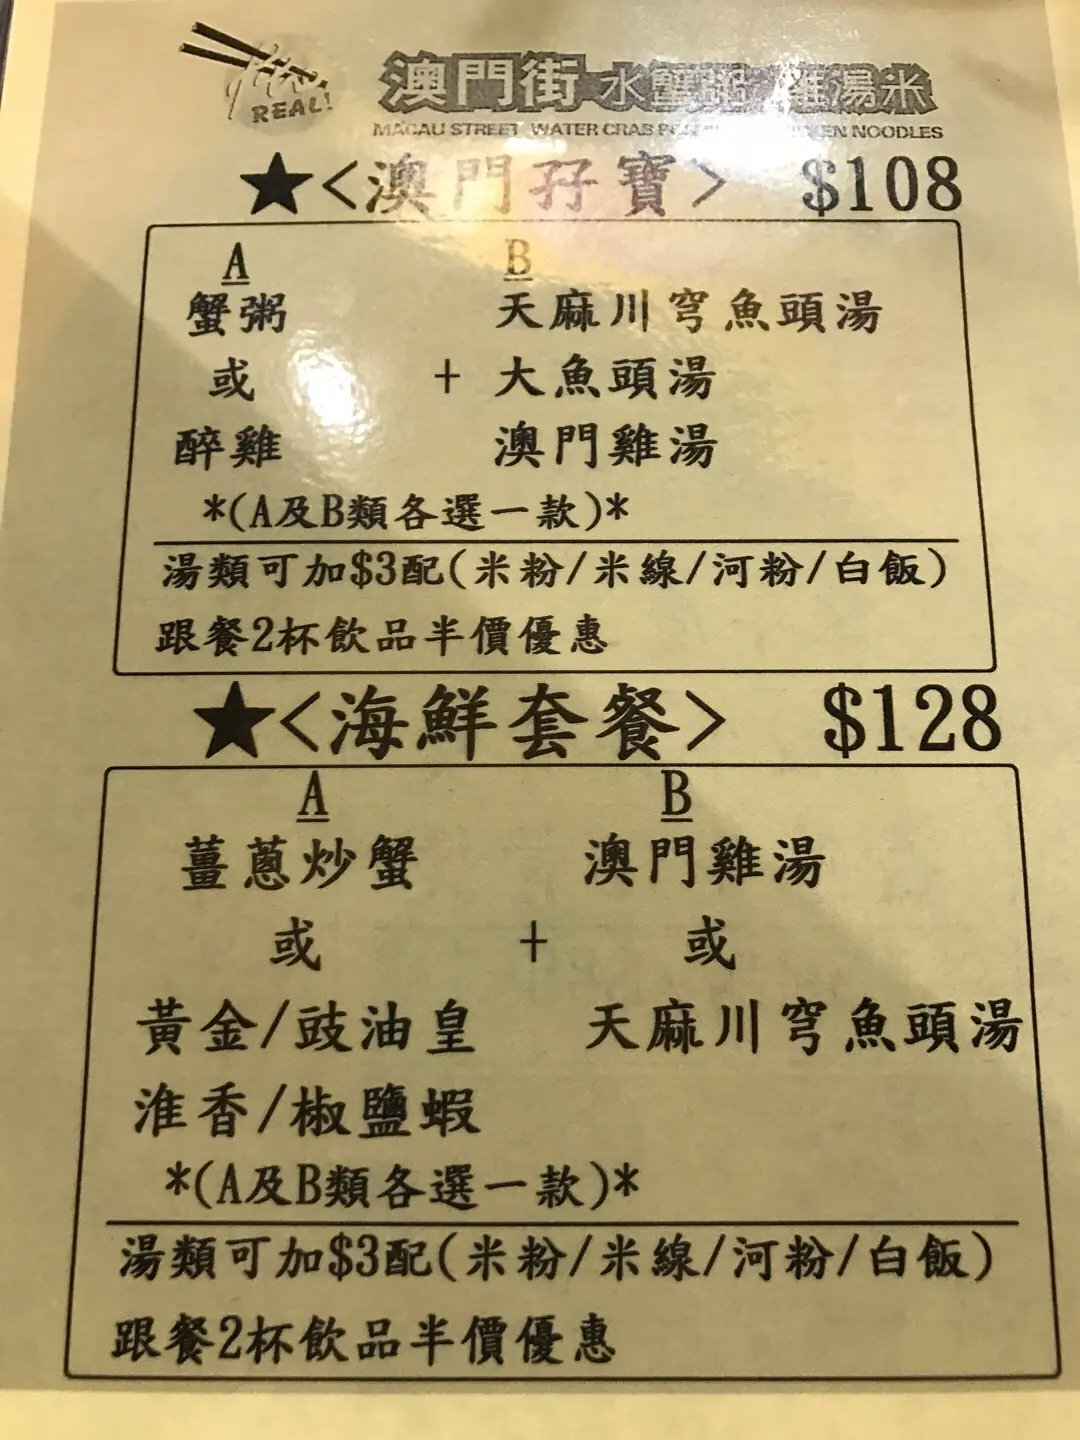 REAL!
澳門街 水蟹粥 雞湯米
MACAU STREET WATER CRAB NOODLES
★<澳門孖寶> $108
A B
蟹粥 天麻川穹魚頭湯
或 + 大魚頭湯
醉雞 澳門雞湯
*(A及B類各選一款)*
湯類可加$3配(米粉/米線/河粉/白飯)
跟餐2杯飲品半價優惠
★<海鮮套餐> $128
A B
薑蔥炒蟹 澳門雞湯
或 + 或
黃金/豉油皇 天麻川穹魚頭湯
淮香/椒鹽蝦
*(A及B類各選一款)*
湯類可加$3配(米粉/米線/河粉/白飯)
跟餐2杯飲品半價優惠